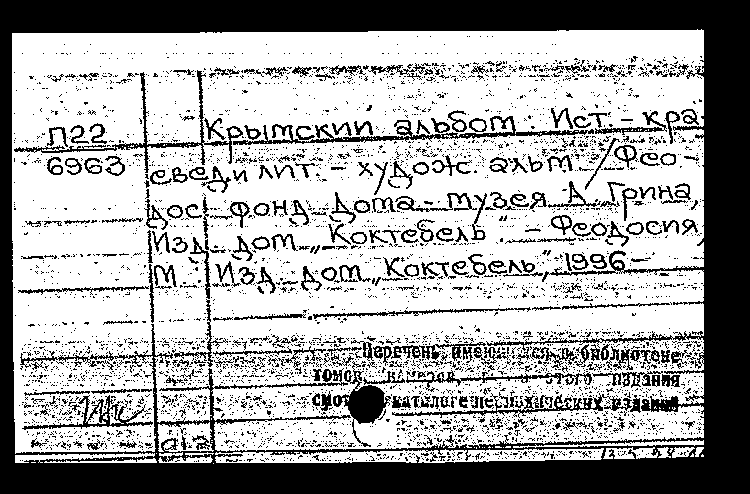 П22
6963
Крымский альбом : Ист. - кра-
евед. и лит. - худож. альм. / Фео-
дос. фонд Дома - музея А. Грина,
Изд. дом „Коктебель". - Феодосия,
М. : Изд. дом „Коктебель", 1996 -
Перечень имеющихся в библиотеке
томов, номеров, этого издания
каталоге периодических изданий